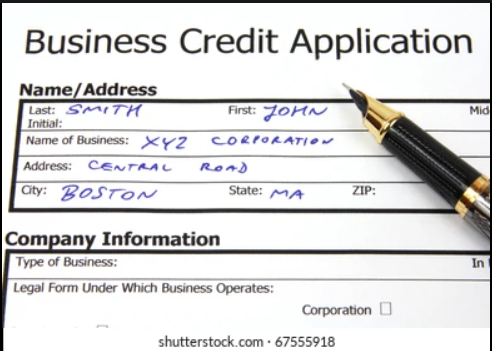 Business Credit Application
Name/Address
Last: SMITH First: JOHN Mid
Initial:
Name of Business: XYZ CORPORATION
Address: CENTRAL ROAD
City: BOSTON State: MA ZIP:
Company Information
Type of Business: In
Legal Form Under Which Business Operates:
Corporation
shutterstock.com · 67555918